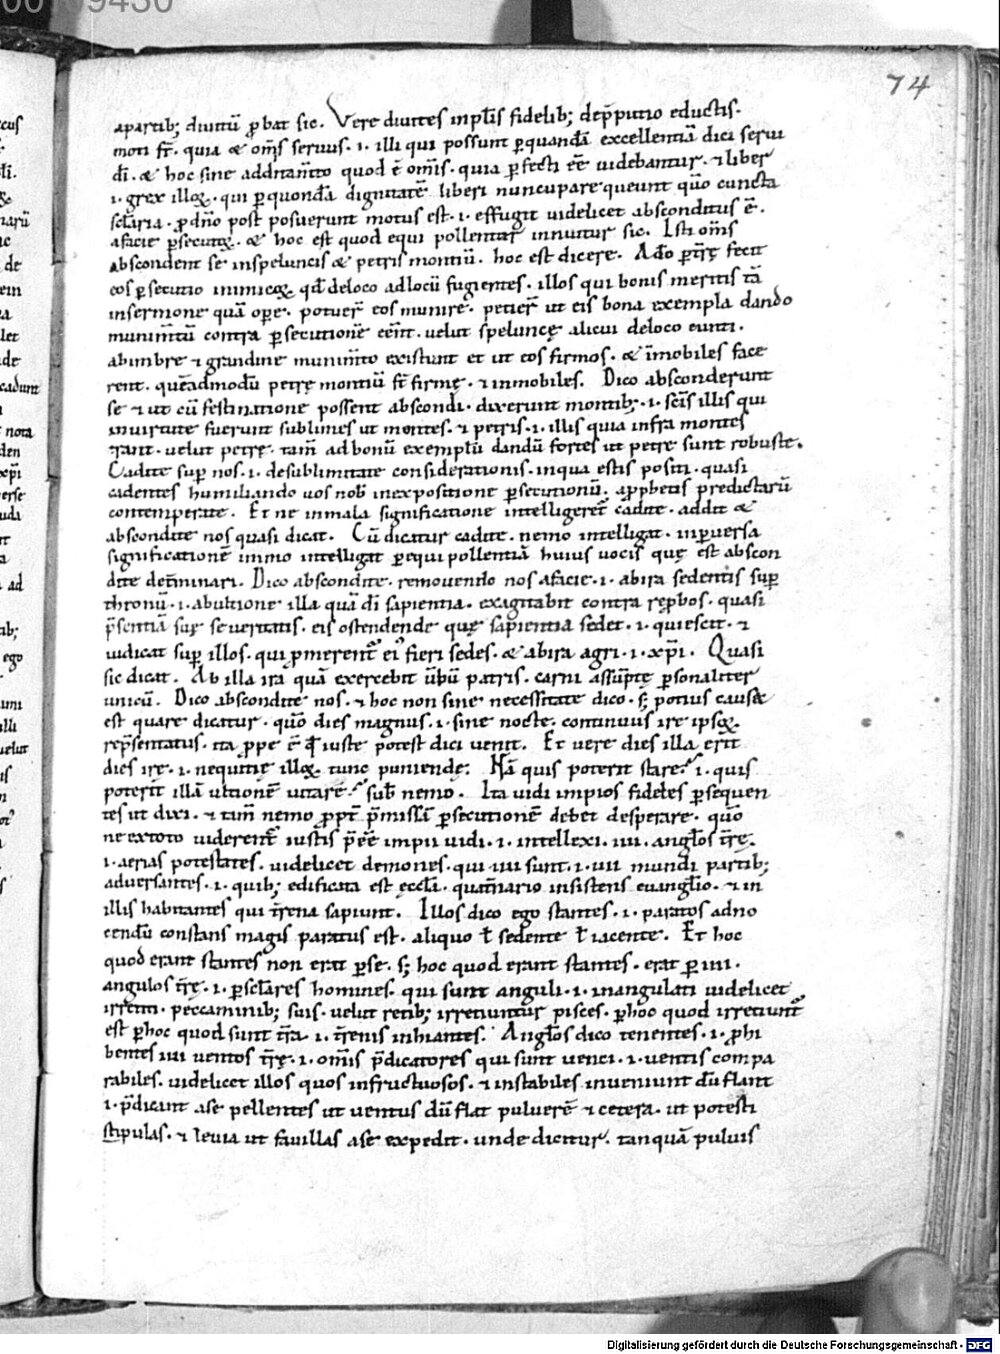 74
apartib; diuitũ ꝓbat sic. Vere diuites inpl̄is fidelib; dep̄putio eductis.
moti s̄t. quia & om̄s seruus .i. illi qui possunt ꝑquandā excellentiā dici serui
d̄i. & hoc sine additam̄to quod ē om̄is. quia ꝑfecti eē uidebantur. ⁊ liber
.i. grex illoꝝ. qui ꝑquondā dignitatē liberi nuncupare queunt qūo cuncta
sc̄laria. ꝓ dn̄o post posuerunt motus est .i. effugit uidelicet absconditus ē.
afacie ꝑsecutoꝝ. & hoc est quod equi pollentar̄ innuitur sic. Isti om̄s
absconderit se inspeluncis & petris montiũ. hoc est dicere. Ad̄o ꝑt̄rę fecit
eos ꝑsecutio inimicoꝝ qđ deloco adlocũ fugientes. illos qui bonis meritis tā
insermone quā oꝑe. potuer̄ eos munire. petier̄ ut eis bona exempla dando
munim̄tũ contra ꝑsecutionē eēnt. uelut speluncę alicui deloco eunti.
abimbre ⁊ grandine munim̄to existunt et ut eos firmos. & īmobiles face
rent. quēadmodũ petrę montiũ s̄t firmę. ⁊ inmobiles. Dico absconderunt
se ⁊ ut cũ festinatione possent abscondi. dixerunt montib; .i. sc̄is illis qui
inuirtute fuerunt sublimes ut montes. ⁊ petris .i. illis quia infra montes
erant. uelut petrę. tam̄ ad bonũ exemplũ dandũ fortes ut petre sunt robuste.
Cadite suꝑ nos .i. desublimitate considerationis. inqua estis positi. quasi
cadentes humiliando uos nob̄ inexpositione ꝑsecutionũ. app̄betis predictarũ
contemperate. Et ne inmala significatione intelligeret̄ cadite. addit &
abscondite nos quasi dicat. Cũ dicatur cadite. nemo intelligat. inꝑuersa
significationē immo intelligat ꝑequi pollentiā huius uocis quę est abscon
dite det̄minari. Dico abscondite. remouendo nos afacie .i. abira sedentis suꝑ
thronũ .i. abultione illa quā d̄i sapientia. exagitabit contra rep̄bos. quasi
p̄sentiā suę seueritatis. eis ostendende quę sapientia sedet .i. quiescit. ⁊
iudicat suꝑ illos. qui p̄merent̄ ei' fieri sedes. & abira agni .i. xp̄i. Quasi
sic dicat. Ab illa ira quā exercebit ūbũ patris. carni assũptę ꝑsonaliter
unicũ. Dico abscondite nos. ⁊ hoc non sine necessitate dico. s; potius causa
est quare dicatur. qūo dies magnus .i. sine nocte. continuus ire ipsoꝝ.
rep̄sentatus. ita ꝓpe ē qđ iuste potest dici uenit. Et uere dies illa erit
dies irę .i. nequitię illoꝝ. tunc puniendę. Nā quis poterit stare? .i. quis
poterit illā ultionē uitare? sub̄ nemo. Ita uidi impios fideles ꝑsequen
tes ut dixi. ⁊ tam̄ nemo ꝓpt̄ p̄missā ꝑsecutionē debet desperare. qūo
ne extoto uiderent̄ iustis p̄eē impii uidi .i. intellexi .iiii. angl̄os t̄rę.
.i. aerias potestates. uidelicet demones. qui .iiii sunt .i. iiii mundi partib;
aduersantes .i. quib; edificata est ęccl̄a. quat̄nario insistens euangl̄io. ⁊ in
illis habitantes qui t̄rena sapiunt. Illos dico ego stantes .i. paratos adno
cendũ constans magis paratus est. aliquo ł sedente ł iacente. Et hoc
quod erant stantes non erat ꝑse. s; hoc quod erant stantes. erat ꝑ iiii.
angulos t̄rę .i. ꝑsc̄lares homines. qui sunt anguli .i. inangulati uidelicet
irretiti. peccaminib; suis. uelut retib; irretiuntur pisces. ꝑhoc quod irretiunt̄
est ꝑhoc quod sunt t̄ra .i. t̄renis inhiantes. Angl̄os dico tenentes .i. ꝓhi
bentes iiii uentos t̄rę .i. om̄is p̄dicatores qui sunt uenti .i. uentis compa
rabiles. uidelicet illos quos infructuosos. ⁊ instabiles inueniunt dũ flant
.i. p̄dicant ase pellentes ut uentus dũ flat puluerē ⁊ cetera. ut potesti
stipulas. ⁊ leuia ut fauillas ase expedit. unde dicitur. tanquā puluis
Digitalisierung gefördert durch die Deutsche Forschungsgemeinschaft - DFG